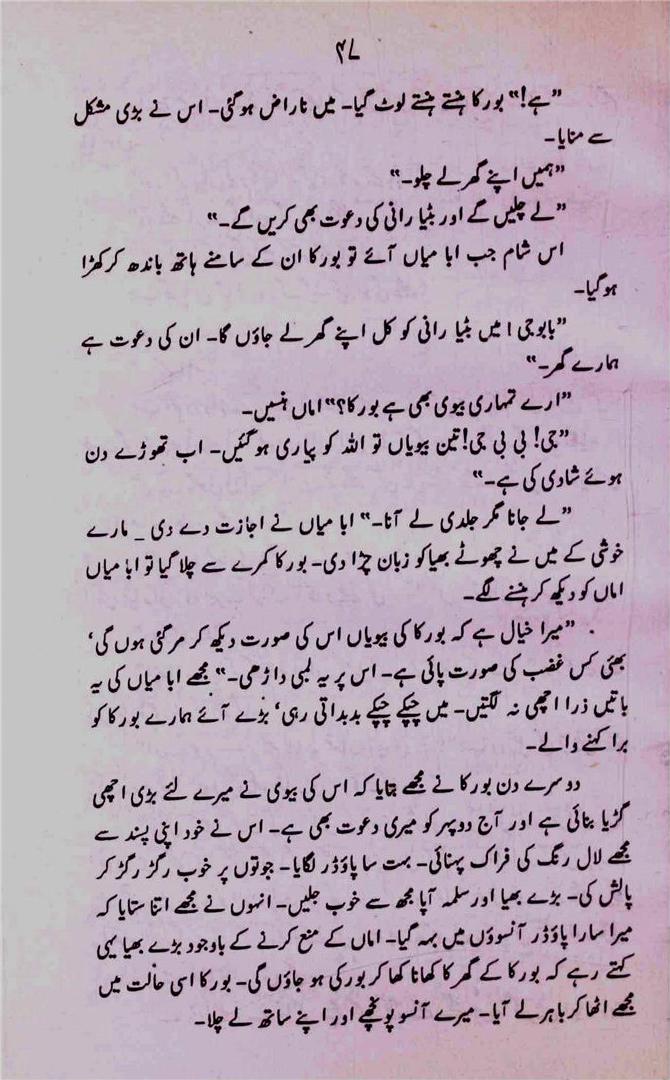 ۴۸
”ہے!“ بورکا ہنستے ہنستے لوٹ گیا۔ میں ناراض ہوگئی۔ اس نے بڑی مشکل
سے منایا۔
”ہمیں اپنے گھر لے چلو۔“
”لے چلیں گے اور بٹیا رانی کی دعوت بھی کریں گے۔“
اس شام جب ابا میاں آئے تو بورکا ان کے سامنے ہاتھ باندھ کر کھڑا
ہوگیا۔
”بابوجی! میں بٹیا رانی کو کل اپنے گھر لے جاؤں گا۔ ان کی دعوت ہے
ہمارے گھر۔“
”ارے تمہاری بیوی بھی ہے بورکا؟“ اماں ہنسیں۔
”جی! بی بی جی! تین بیویاں تو اللہ کو پیاری ہوگئیں۔ اب تھوڑے دن
ہوئے شادی کی ہے۔“
”لے جانا مگر جلدی لے آنا۔“ ابا میاں نے اجازت دے دی ۔ مارے
خوشی کے میں نے چھوٹے بھیا کو زبان چڑا دی۔ بورکا کمرے سے چلا گیا تو ابا میاں
اماں کو دیکھ کر ہنسنے لگے۔
”میرا خیال ہے کہ بورکا کی بیویاں اس کی صورت دیکھ کر مرگئی ہوں گی‘
بھئی کس غضب کی صورت پائی ہے۔ اس پر یہ لمبی داڑھی۔“ مجھے ابا میاں کی یہ
باتیں ذرا اچھی نہ لگتیں۔ میں چپکے چپکے بدبداتی رہی‘ بڑے آئے ہمارے بورکا کو
برا کہنے والے۔
دوسرے دن بورکا نے مجھے بتایا کہ اس کی بیوی نے میرے لئے بڑی اچھی
گڑیا بنائی ہے اور آج دوپہر کو میری دعوت بھی ہے۔ اس نے خود اپنی پسند سے
مجھے لال رنگ کی فراک پہنائی۔ بہت سا پاؤڈر لگایا۔ جوتوں پر خوب رگڑ رگڑ کر
پالش کی۔ بڑے بھیا اور سلمہ آپا مجھ سے خوب جلیں۔ انہوں نے مجھے اتنا ستایا کہ
میرا سارا پاؤڈر آنسوؤں میں بہہ گیا۔ اماں کے منع کرنے کے باوجود بڑے بھیا یہی
کہتے رہے کہ بورکا کے گھر کا کھانا کھا کر بورکی ہو جاؤں گی۔ بورکا اسی حالت میں
مجھے اٹھا کر باہر لے آیا۔ میرے آنسو پونچھے اور اپنے ساتھ لے چلا۔